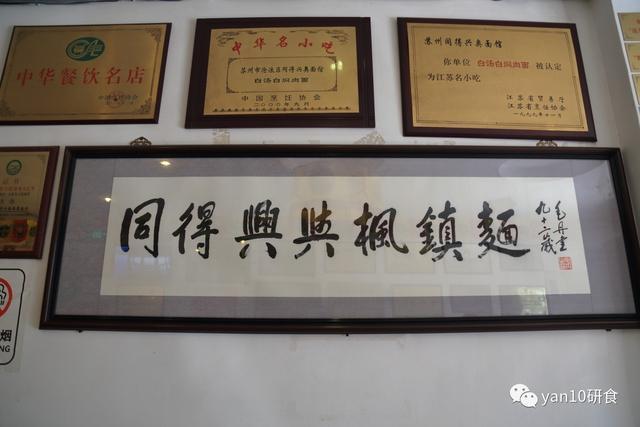 中华餐饮名店
中华名小吃
苏州市沧浪区同得兴奥面馆
白汤白焖肉面
中国烹饪协会
二〇〇〇年九月
苏州同得兴奥面馆
你单位 白汤白焖肉面 被认定
为江苏名小吃
江苏省贸易厅
江苏省烹饪协会
一九九九年十一月
同得興興楓鎮麵
九十六歲
毛丹書
烟
NG
yan10研食